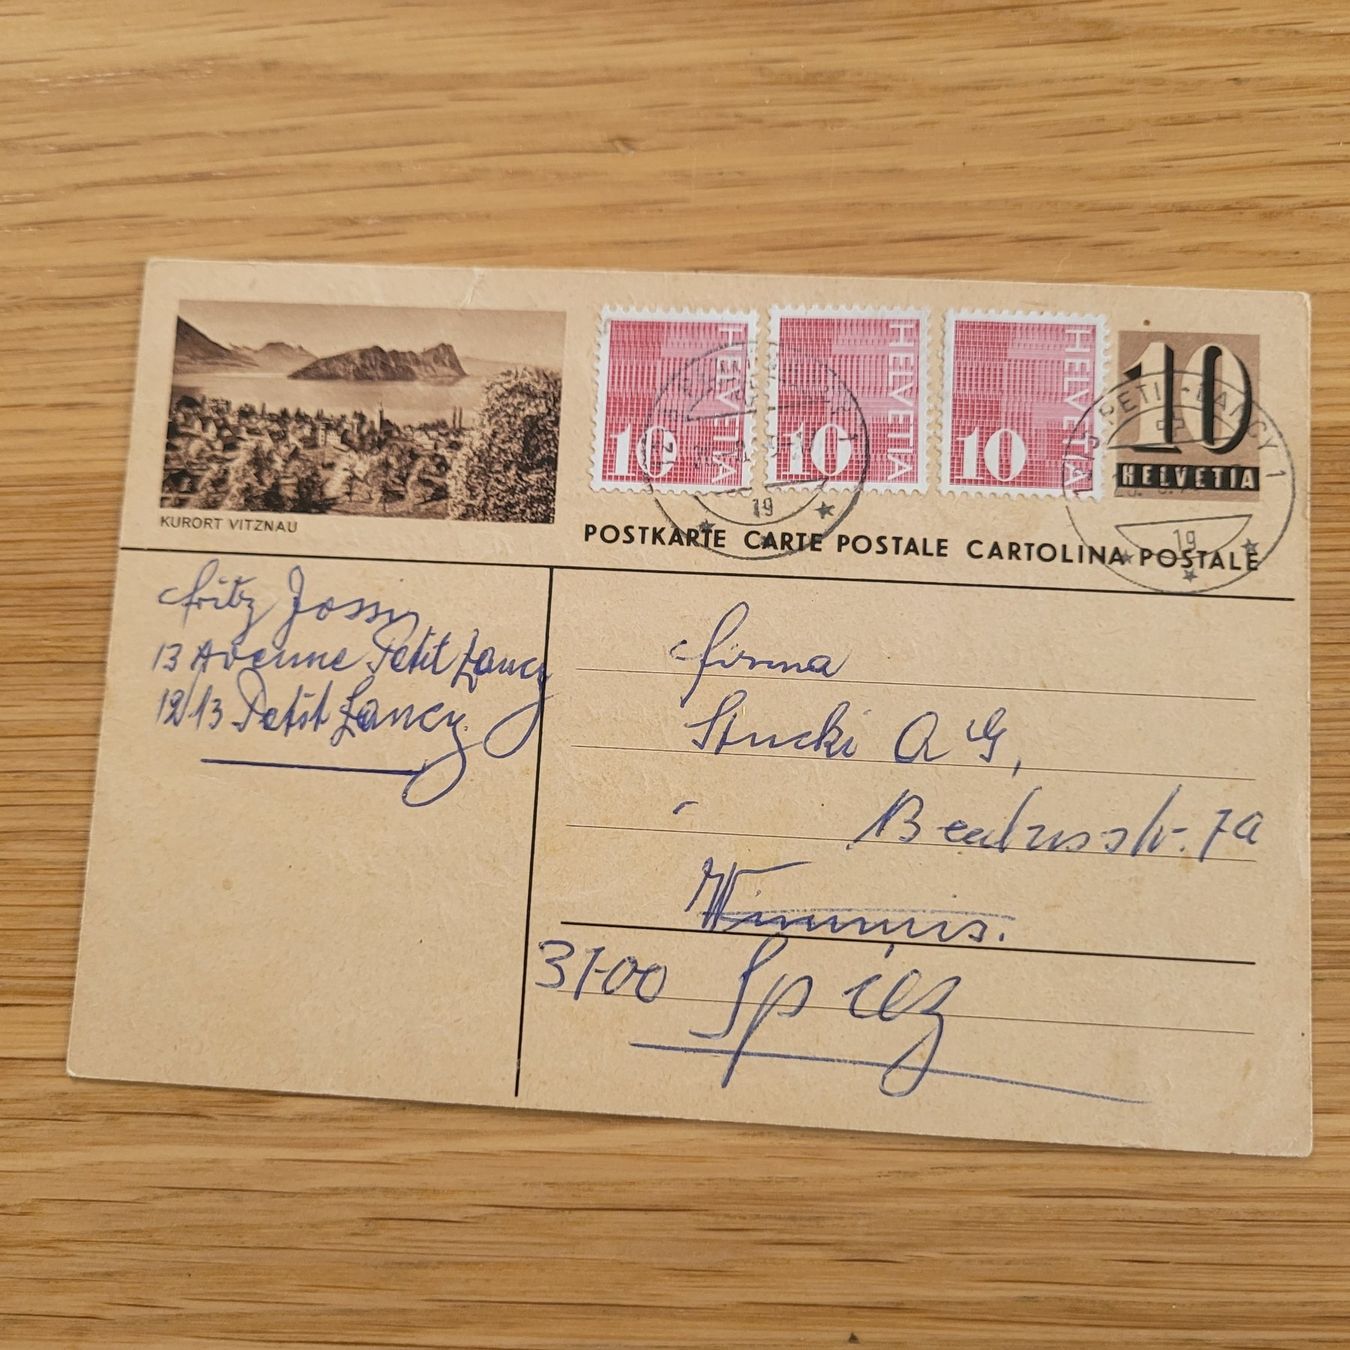 KURORT VITZNAU
HELVETIA
10
HELVETIA
10
HELVETIA
10
10
HELVETIA
PETIT-LANCY 1
19
19
POSTKARTE CARTE POSTALE CARTOLINA POSTALE
Fritz Joss
13 Avenue Petit Lancy
1213 Petit Lancy
Firma
Stucki AG,
7a
Wimmis.
3700 Spiez